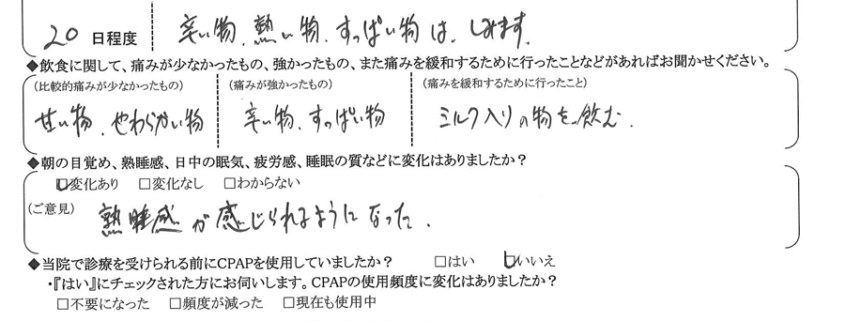 20 日程度 辛い物、熱い物、すっぱい物は、しみます。
◆飲食に関して、痛みが少なかったもの、強かったもの、また痛みを緩和するために行ったことなどがあればお聞かせください。
(比較的痛みが少なかったもの) (痛みが強かったもの) (痛みを緩和するために行ったこと)
甘い物、やわらかい物 辛い物、すっぱい物 ミルク入りの物を飲む。
◆朝の目覚め、熟睡感、日中の眠気、疲労感、睡眠の質などに変化はありましたか？
☑変化あり □変化なし □わからない
(ご意見) 熟睡感が感じられるようになった。
◆当院で診療を受けられる前にCPAPを使用していましたか？ □はい ☑いいえ
・『はい』にチェックされた方にお伺いします。CPAPの使用頻度に変化はありましたか？
□不要になった □頻度が減った □現在も使用中